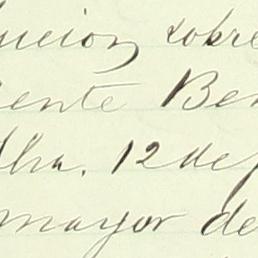 ucion sobre
ente Ben
dha. 12 de
mayor de